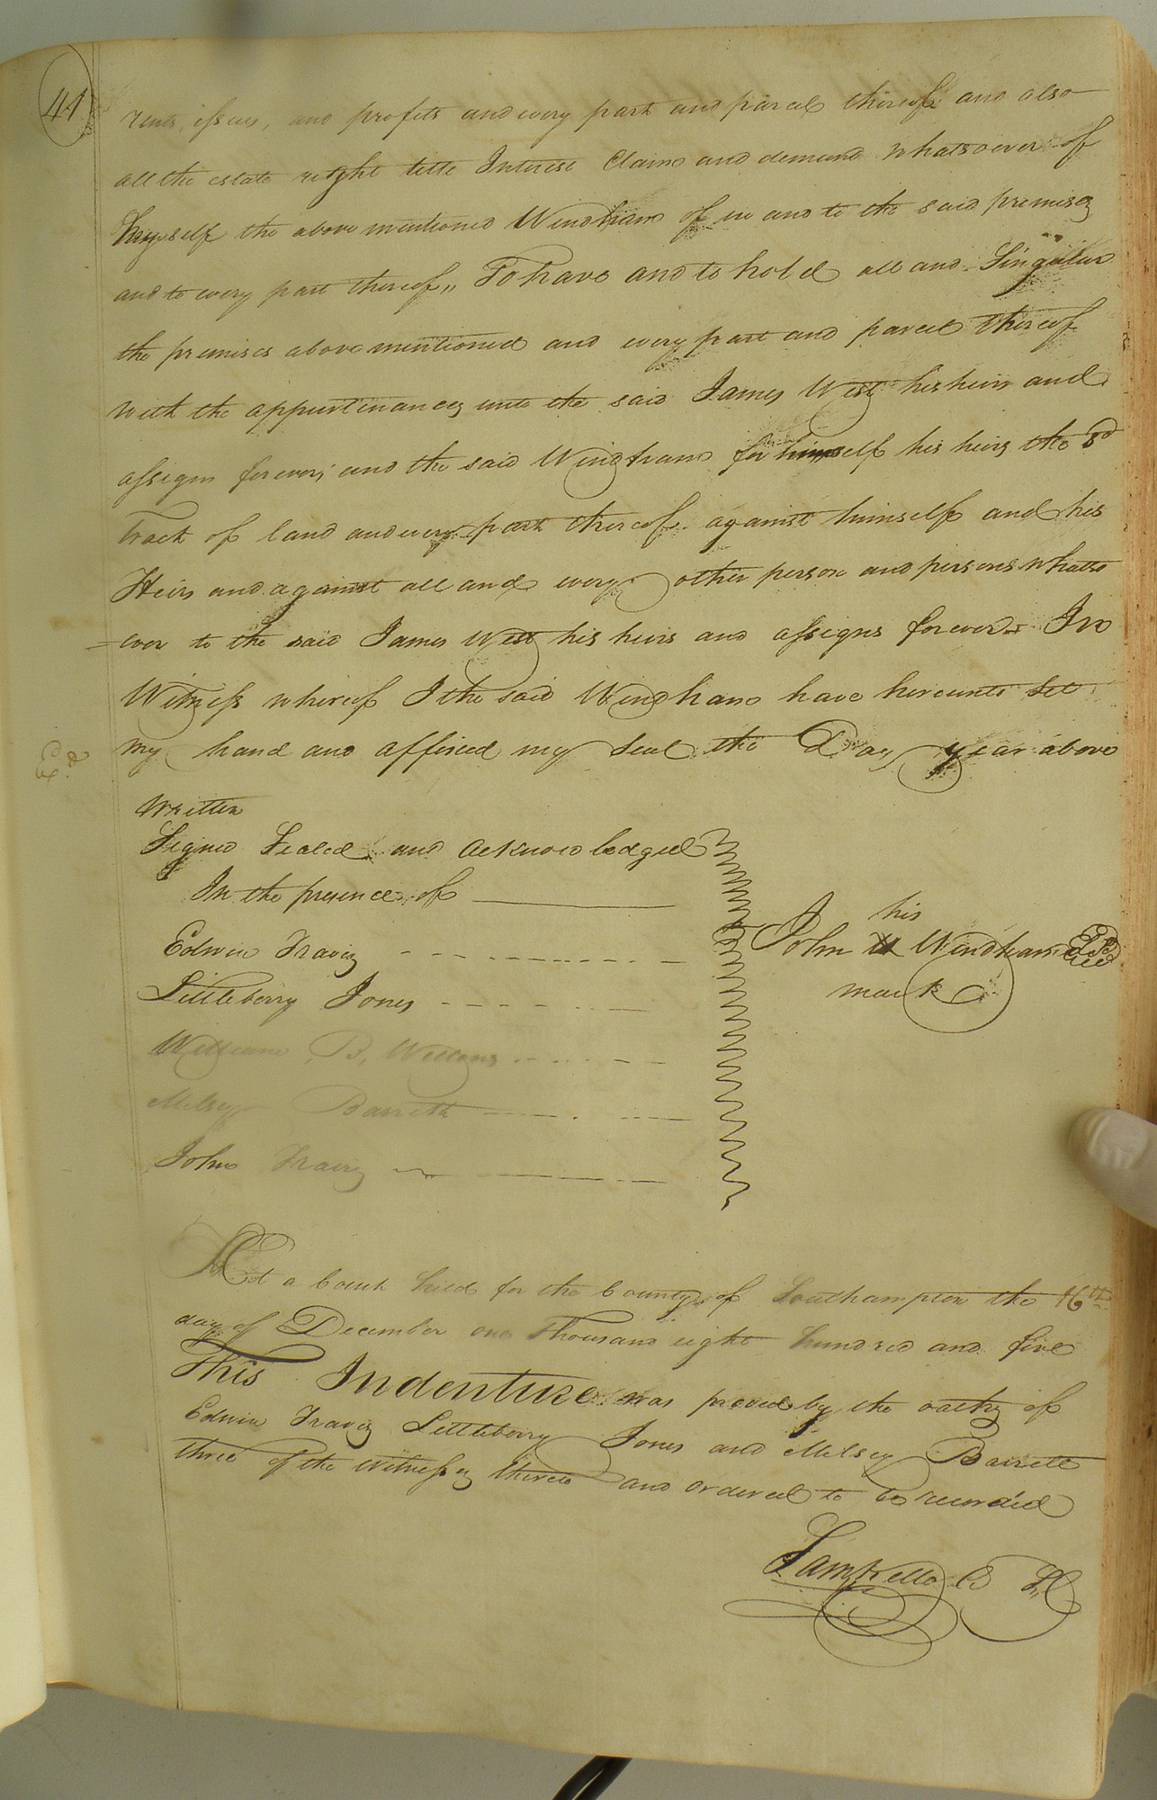 41
rents, issues, and profits and every part and parcel thereof and also
all the estate right title Interest Claim and demand whatsoever of
Myself the above mentioned Windham of in and to the said premises
and to every part thereof,, To have and to hold all and Singular
the premises above mentioned and every part and parcel thereof
with the appurtinances unto the said James West his heirs and
assigns forever; and the said Windham for himself his heirs the sd
Tract of land and every part thereof against himself and his
Heirs and against all and every other person and persons whatso
=ever to the said James West his heirs and assigns forever In
Witness whereof I the said Windham have hereunto set
my hand and affixed my Seal the Day year above
Written
Signed Sealed and Acknowledged
In the presence of
Edwin Travis
Littleberry Jones
William B, Wellons
Melsey Barrett
John Travis
his
John Windham
mark
At a Court held for the County of Southampton the 16th
day of December one Thousand eight hundred and five
This Indenture was proved by the oaths of
Edwin Travis Littleberry Jones and Melsey Barrett
three of the witnesses thereto and ordered to be recorded
Sam Kello C